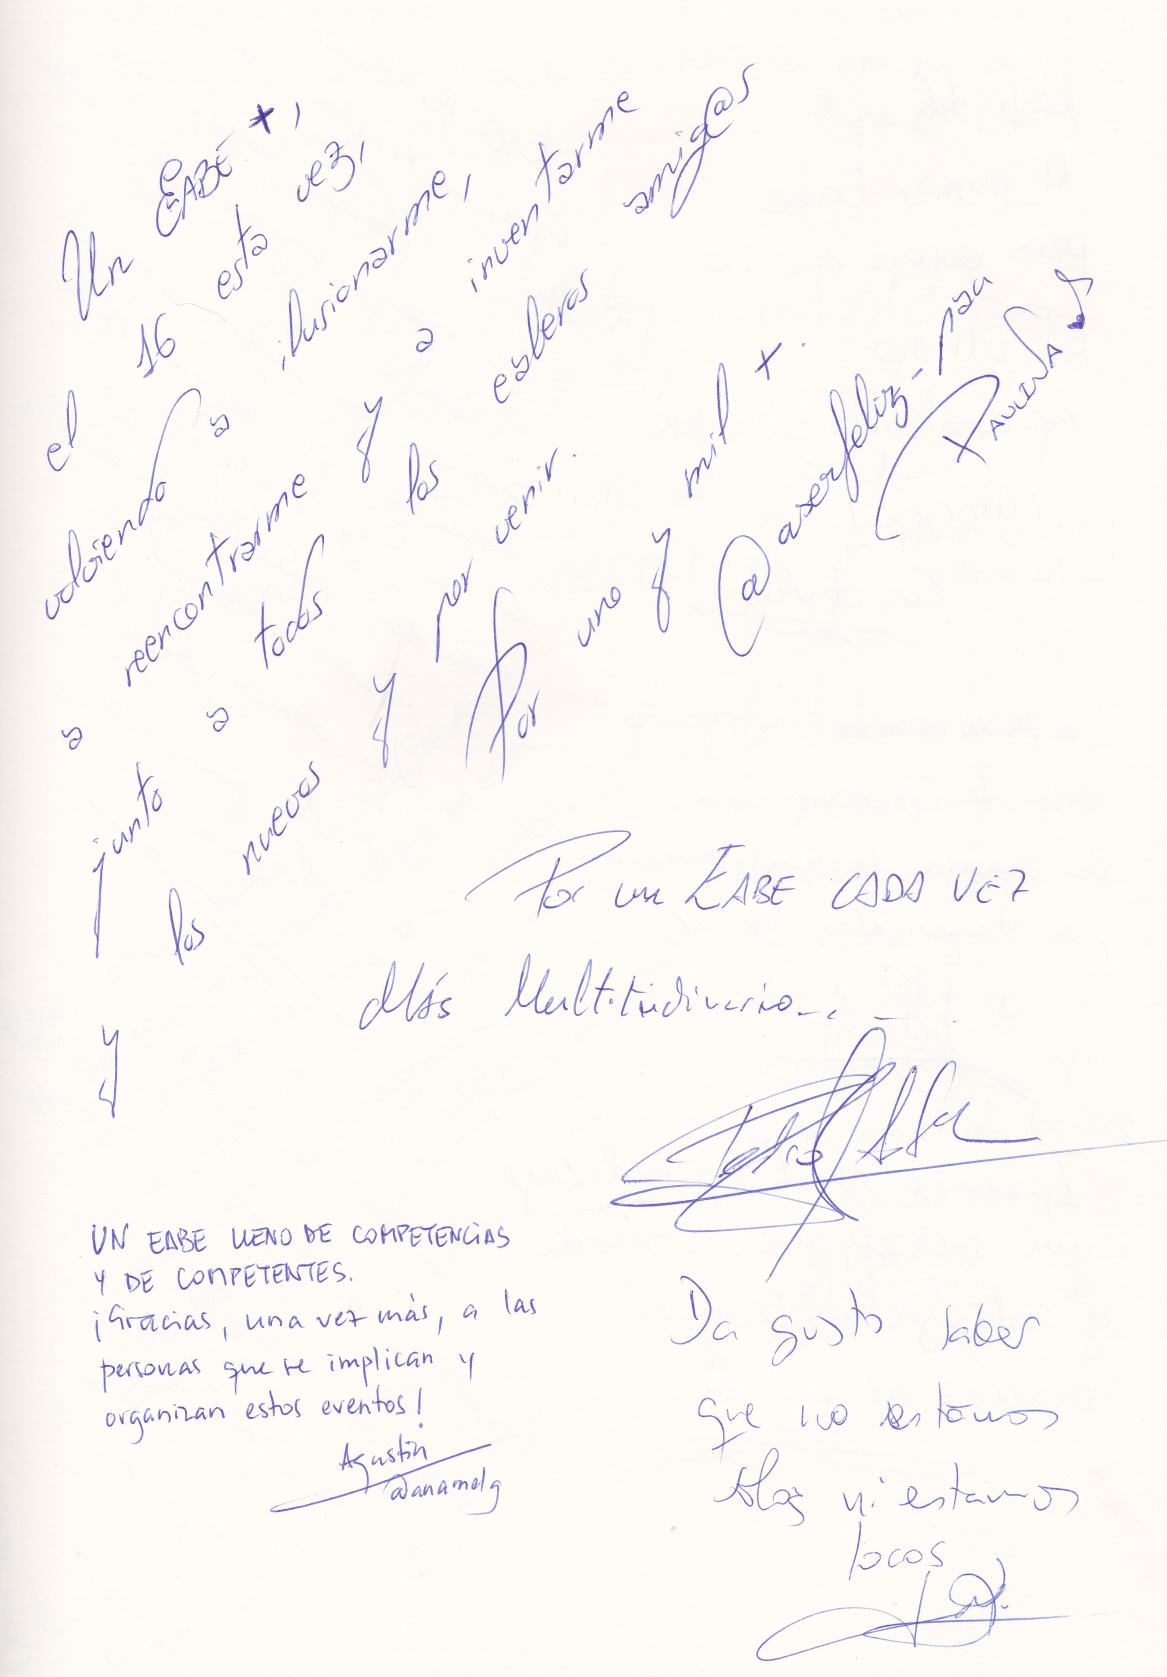 Un EABE +,
el 16 esta vez,
volviendo a ilusionarme,
a reencontrarme y a inventarme
junto a todos los eaberos amig@s
y los nuevos y por venir.
Por uno y mil +.
@aserfeliz-pau
PAULINA
Por un EABE CADA VEZ
Más
UN EABE LLENO DE COMPETENCIAS
Y DE COMPETENTES.
¡Gracias, una vez más, a las
personas que se implican y
organizan estos eventos!
Agustín
@anamelg
Da gusto saber
que no estamos
solos ni estamos
locos